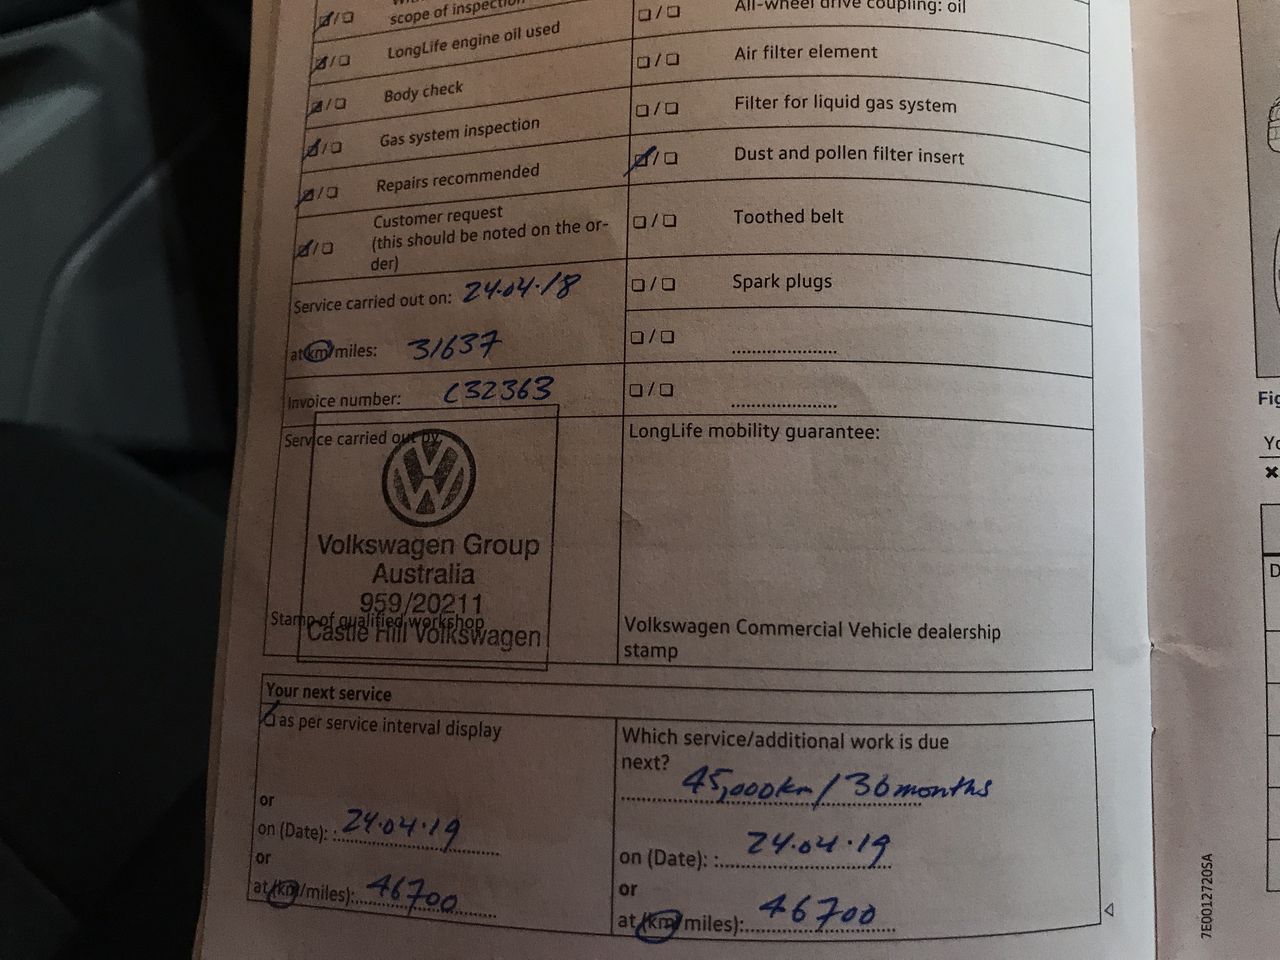 scope of inspection
LongLife engine oil used
Body check
Gas system inspection
Repairs recommended
Customer request
(this should be noted on the or-
der)
Service carried out on: 24.04.18
at km/miles: 31637
Invoice number: C32363
Service carried out by:
Volkswagen Group
Australia
959/20211
Castle Hill Volkswagen
Stamp of qualified workshop
All-wheel drive coupling: oil
Air filter element
Filter for liquid gas system
Dust and pollen filter insert
Toothed belt
Spark plugs
LongLife mobility guarantee:
Volkswagen Commercial Vehicle dealership
stamp
Your next service
as per service interval display
or
on (Date): : 24.04.19
or
at (km/miles): 46700
Which service/additional work is due
next? 45,000km / 36 months
on (Date): : 24.04.19
or
at (km/miles): 46700
7E0012720SA